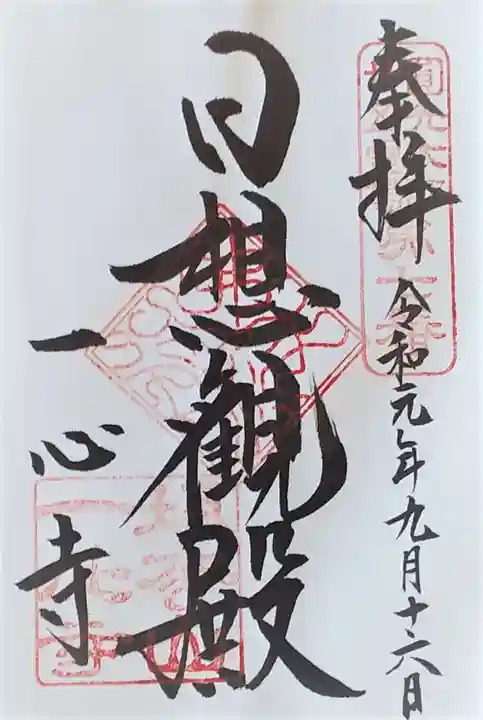 奉拝 令和元年九月十六日
日想観殿
一心寺